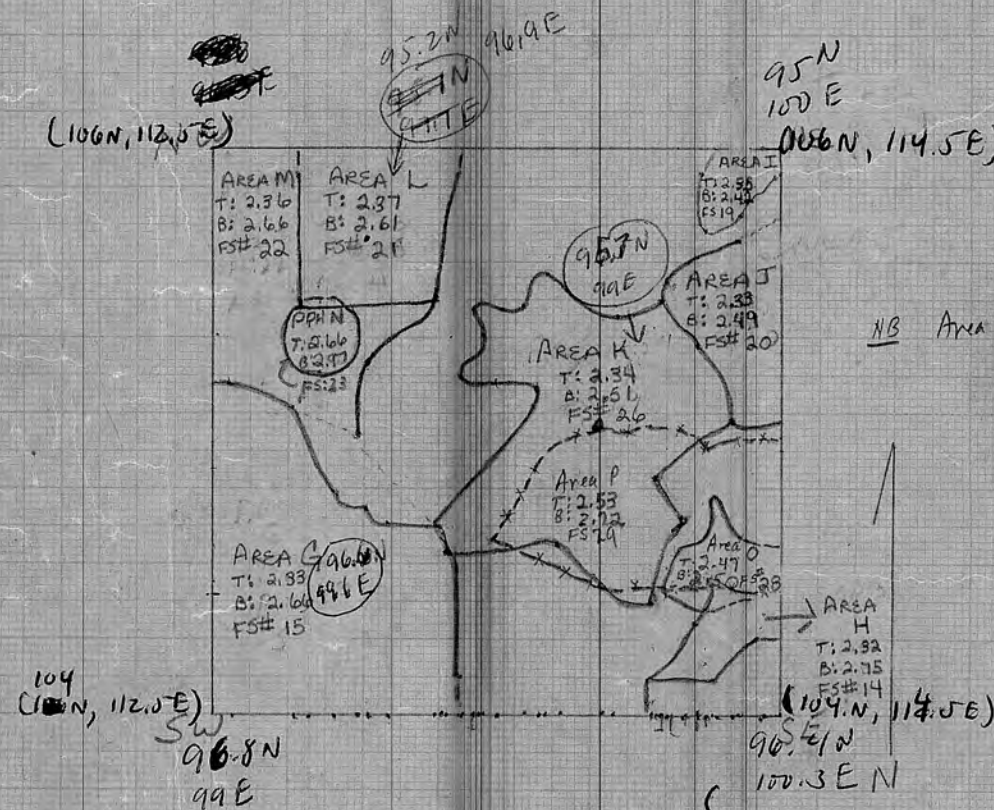 95.2N 96.9E
95N
100 E
(106N, 112.5E)
(106N, 114.5E)
AREA M
T: 2.36
B: 2.66
FS# 22
AREA L
T: 2.37
B: 2.61
FS# 21
AREA I
B: 2.42
FS 19
95.7N
99E
AREA J
T: 2.33
B: 2.49
FS# 20
NB Area
PPH N
T: 2.66
B: 2.97
FS: 23
AREA K
T: 2.34
B: 2.51
FS# 26
Area P
T: 2.53
B: 2.72
FS 29
Area O
T: 2.47
FS# 28
AREA G
T: 2.33
B: 2.66
FS# 15
99.6 E
AREA
H
T: 2.32
B: 2.75
FS# 14
104
N, 112.5E)
(104.N, 114.5E)
SW
96.8N
99E
SE
100.3 E N